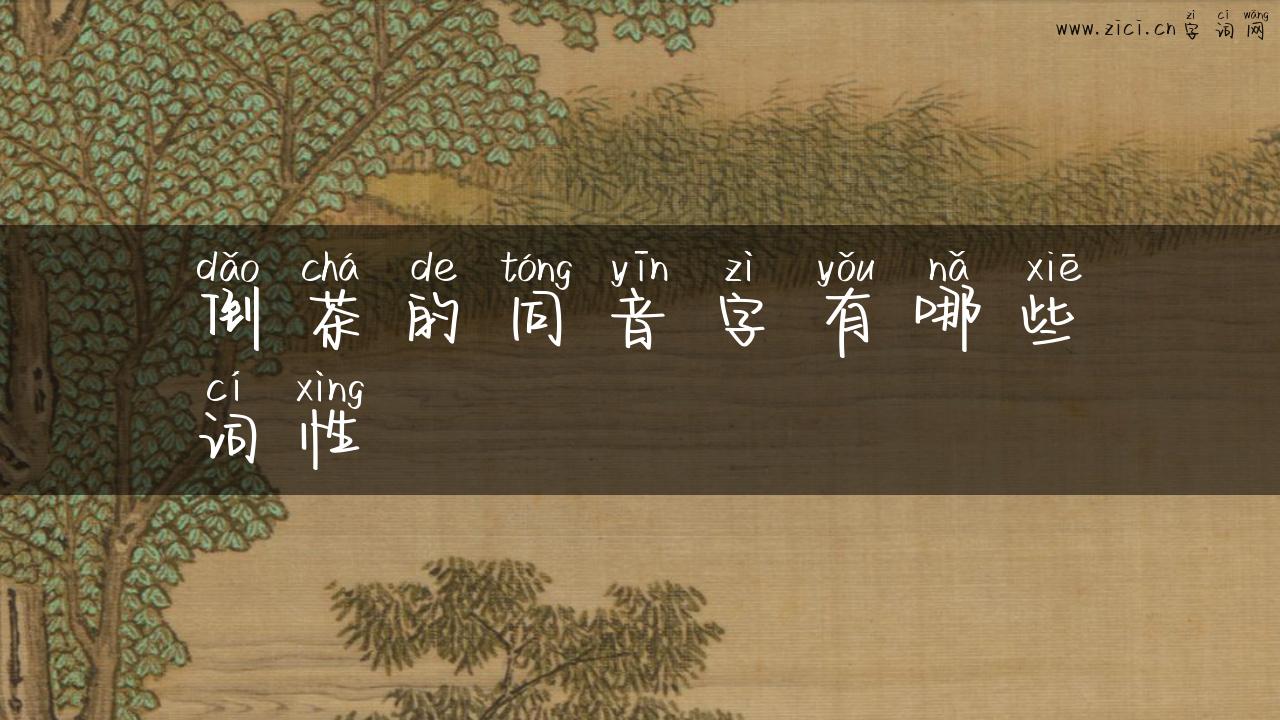 zì cí wǎng
www.zici.cn 字词网
dǎo chá de tóng yīn zì yǒu nǎ xiē
倒茶的同音字有哪些
cí xìng
词性